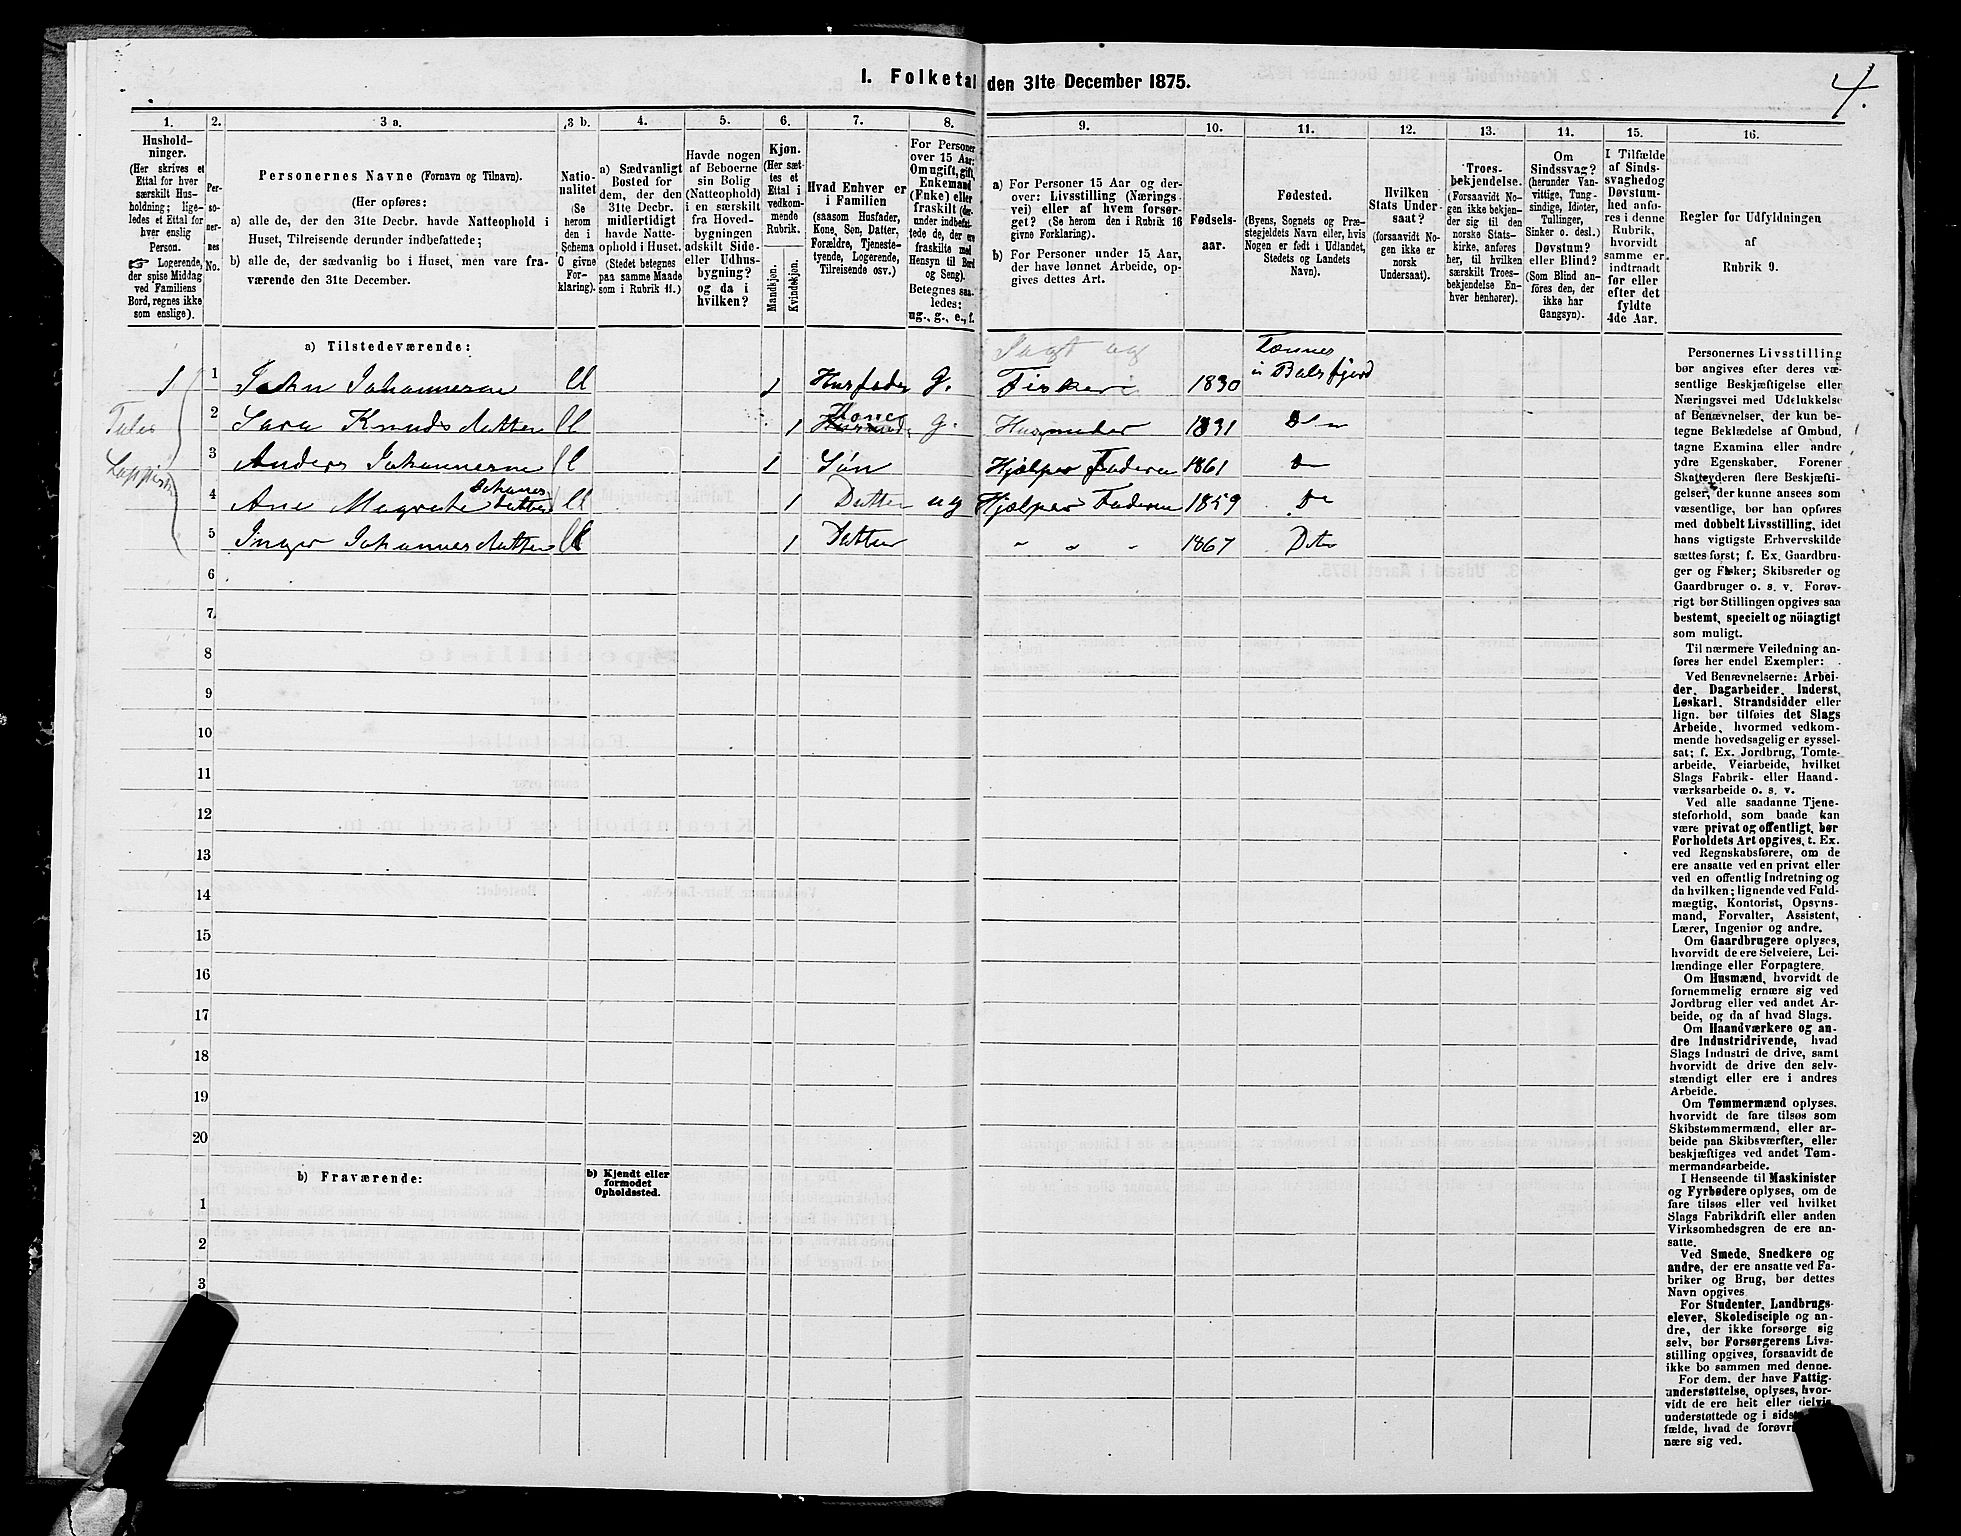 I. Folketal den 31te December 1875.
4.
1.
Hushold-
ninger.
(Her skrives et
Ettal for hver
særskilt Hus-
holdning; lige-
ledes et Ettal for
hver enslig
Person.
☞ Logerende,
der spise Middag
ved Familiens
Bord, regnes ikke
som enslige).
2.
Per-
so-
ner-
nes
No.
3 a.
Personernes Navne (Fornavn og Tilnavn).
(Her opføres:
a) alle de, der den 31te Decbr. havde Natteophold i
Huset, Tilreisende derunder indbefattede;
b) alle de, der sædvanlig bo i Huset, men vare fra-
værende den 31te December.
3 b.
Natio-
nalitet
(Se
herom
den i
Schema
C givne
For-
klaring).
4.
a) Sædvanligt
Bosted for
dem, der den
31te Decbr.
midlertidigt
havde Natte-
ophold i Huset.
(Stedet betegnes
paa samme Maade
som i Rubrik 11.)
5.
Havde nogen
af Beboerne
sin Bolig
(Natteophold)
i en særskilt
fra Hoved-
bygningen
adskilt Side-
eller Udhus-
bygning?
og da i
hvilken?
6.
Kjøn.
(Her sæt-
tes et
Ettal i
vedkom-
mende
Rubrik.)
Mandkjøn.
Kvindekjøn.
7.
Hvad Enhver er
i Familien
(saasom Husfader,
Kone, Søn, Datter,
Forældre, Tjeneste-
tyende, Logerende,
Tilreisende osv.)
8.
For Personer
over 15 Aar:
Om ugift, gift,
Enkemand
(Enke) eller
fraskilt (der-
under indbefat-
tede de, der ere
fraskilte med
Hensyn til Bord
og Seng).
Betegnes saa-
ledes:
ug., g., e., f.
9.
a) For Personer 15 Aar og der-
over: Livsstilling (Nærings-
vei) eller af hvem forsør-
get? (Se herom den i Rubrik 16
givne Forklaring).
b) For Personer under 15 Aar,
der have lønnet Arbeide, op-
gives dettes Art.
10.
Fødsels-
aar.
11.
Fødested.
(Byens, Sognets og Præ-
stegjeldets Navn eller, hvis
Nogen er født i Udlandet,
Stedets og Landets
Navn).
12.
Hvilken
Stats Under-
saat?
(forsaavidt No-
gen ikke er
norsk
Undersaat).
13.
Troes-
bekjendelse.
(Forsaavidt No-
gen ikke bekjen-
der sig til den
norske Stats-
kirke, anføres
her, til hvilken
særskilt Troes-
bekjendelse En-
hver henhører).
14.
Om
Sindssvag?
(herunder Van-
vittige, Tung-
sindige, Idioter,
Tullinger,
Sinker o. desl.)
Døvstum?
eller Blind?
(Som Blind an-
føres den, der
ikke har
Gangsyn).
15.
I Tilfælde
af Sinds-
svaghed og
Døvstum-
hed anfø-
res i denne
Rubrik,
hvorvidt
samme er
indtraadt
før eller
efter det
fyldte
4de Aar.
16.
Regler for Udfyldningen
af
Rubrik 9.
a) Tilstedeværende:
Jagt og
Tønnes
1 1 John Johannesne U 1 Husfader G. Fisker 1830 i Balsfjord
2 Sara Knudsdatter U 1 Kone g. Husmoder 1831 D n
3 Anders Johannesne U 1 Søn Hjælper Faderen 1861 Do
Johannes
4 Ane Magrete datter U 1 Datter ug Hjælper Faderen 1859 Do
5 Inger Johannesdatter U 1 Datter " " " 1867 Dto
Tales
Lappisk
6
7
8
9
10
11
12
13
14
15
16
17
18
19
20
b) Fraværende:
b) Kjendt eller
formodet
Opholdssted.
1
2
3
Personernes Livsstilling
bør angives efter deres væ-
sentlige Beskjæftigelse eller
Næringsvei med Udelukkelse
af Benævnelser, der kun be-
tegne Beklædelse af Ombud,
tagne Examina eller andre
ydre Egenskaber. Forener
Skatteyderen flere Beskjæfti-
gelser, der kunne ansees som
væsentlige, bør han opføres
med dobbelt Livsstilling, idet
hans vigtigste Erhvervskilde
sættes først; f. Ex. Gaardbru-
ger og Fisker; Skibsreder og
Gaardbruger o. s. v. Forøv-
rigt bør Stillingen opgives saa
bestemt, specielt og nöiagtigt
som muligt.
Til nærmere Veiledning an-
føres her endel Exempler:
Ved Benævnelserne: Arbei-
der, Dagarbeider, Inderst,
Løskarl, Strandsidder eller
lign. bør tilføies det Slags
Arbeide, hvormed vedkom-
mende hovedsagelig er syssel-
sat; f. Ex. Jordbrug, Tomte-
arbeide, Veiarbeide, hvilket
Slags Fabrik- eller Haand-
værksarbeide o. s. v.
Ved alle saadanne Tjene-
steforhold, som baade kan
være privat og offentligt, bør
Forholdets Art opgives, t. Ex.
ved Regnskabsførere, om de
ere ansatte ved en privat eller
ved en offentlig Indretning og
da hvilken; lignende ved Fuld-
mægtig, Kontorist, Opsyns-
mand, Forvalter, Assistent,
Lærer, Ingeniør og andre.
Om Gaardbrugere oplyses,
hvorvidt de ere Selveiere, Lei-
lændinge eller Forpagtere.
Om Husmænd, hvorvidt de
fornemmelig ernære sig ved
Jordbrug eller ved andet Ar-
beide, og da af hvad Slags.
Om Haandværkere og an-
dre Industridrivende, hvad
Slags Industri de drive, samt
hvorvidt de drive den selv-
stændigt eller ere i andres
Arbeide.
Om Tømmermænd oplyses.
hvorvidt de fare tilsøs som
Skibstømmermænd, eller ar-
beide paa Skibsværfter, eller
beskjæftiges ved andet Tøm-
mermandsarbeide.
I Henseende til Maskinister
og Fyrbødere oplyses, om de
fare tilsøs eller ved hvilket
Slags Fabrikdrift eller anden
Virksomhedsgren de ere an-
satte.
Ved Smede, Snedkere og
andre, der ere ansatte ved Fa-
briker og Brug, bør dettes
Navn opgives
For Studenter, Landbrugs-
elever, Skoledisciple og an-
dre, der ikke forsørge sig
selv, bør Forsørgerens Livs-
stilling opgives, forsaavidt de
ikke bo sammen med denne.
For dem, der have Fattig-
understøttelse, oplyses, hvor-
vidt de ere helt eller delvis
understøttede og i sidst
fælde, hvad de forøvri
nære sig ved.